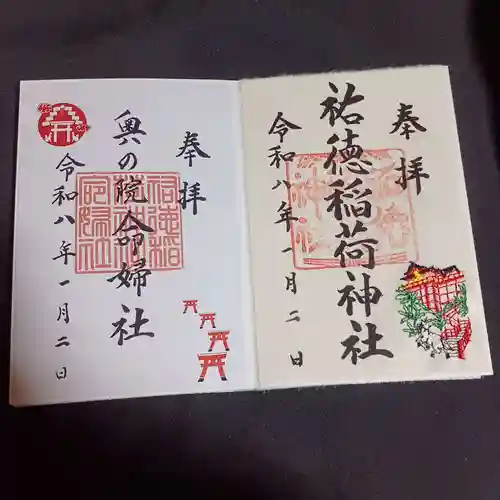 奉拝
祐徳稲荷神社
令和八年一月二日
奉拝
奥の院命婦社
令和八年一月二日